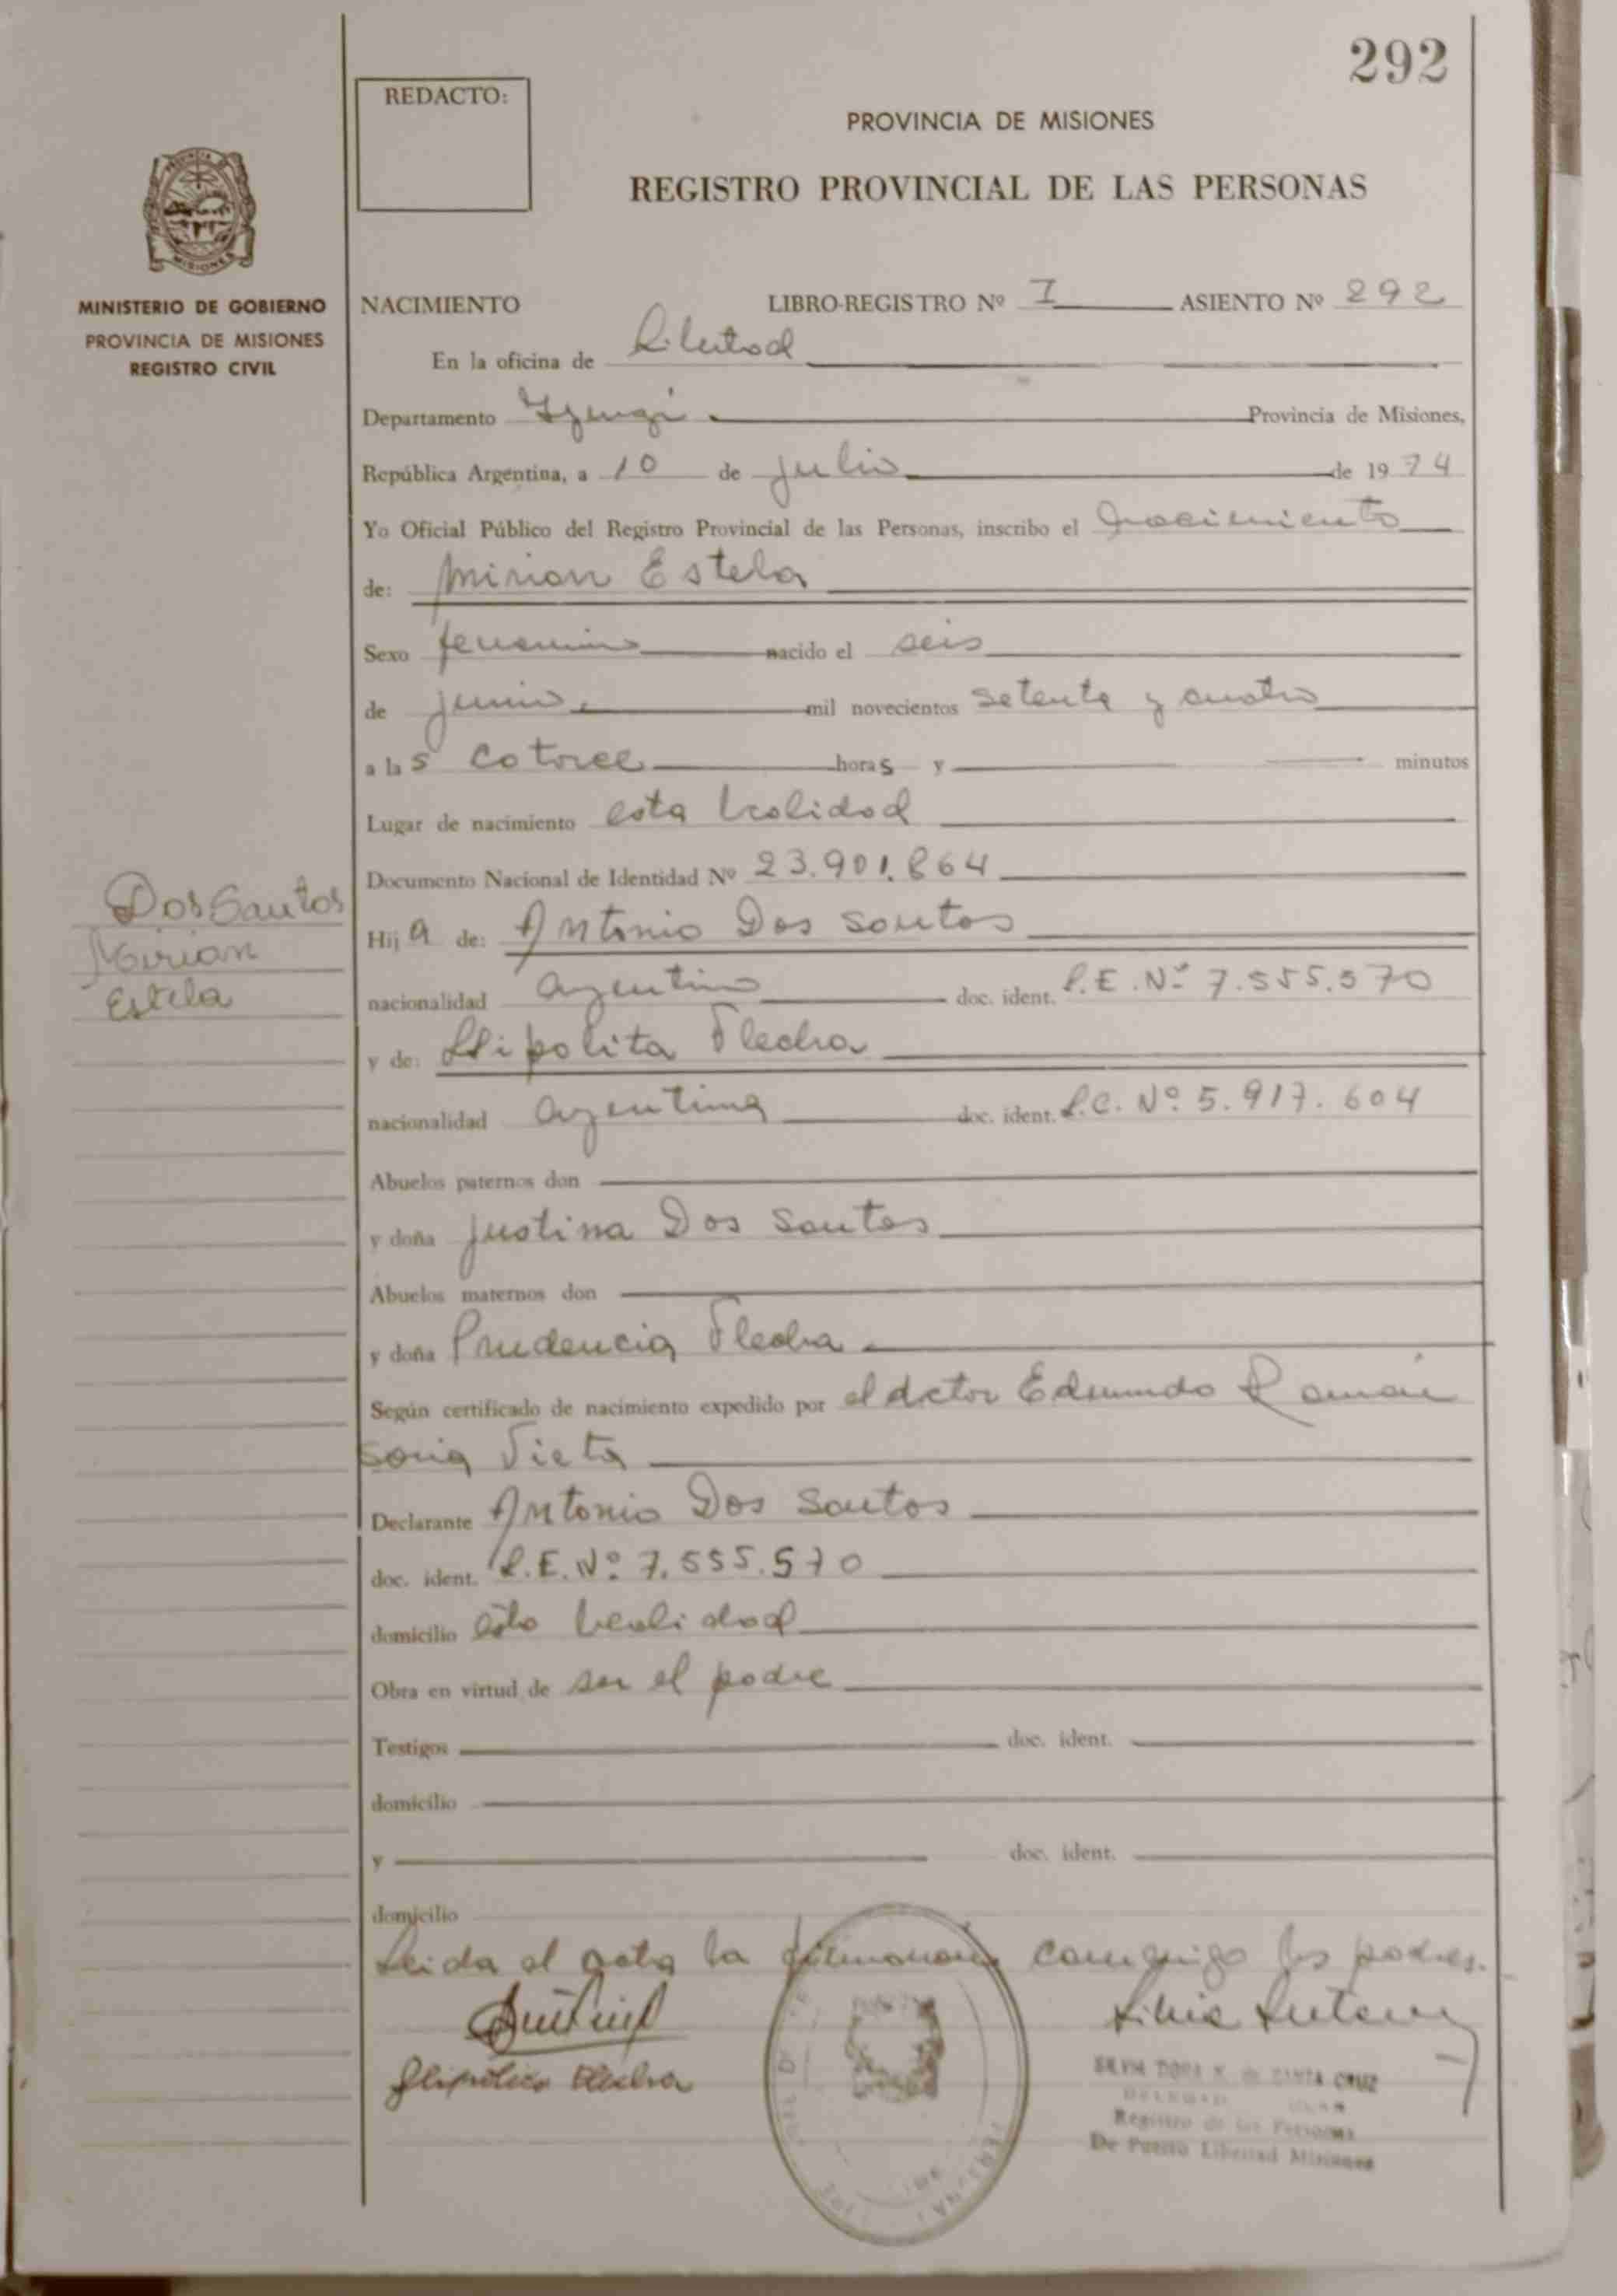 292
REDACTO:
PROVINCIA DE MISIONES
REGISTRO PROVINCIAL DE LAS PERSONAS
MISIONES
MINISTERIO DE GOBIERNO
PROVINCIA DE MISIONES
REGISTRO CIVIL
NACIMIENTO LIBRO-REGISTRO Nº I ASIENTO Nº 292
En la oficina de Libertad
Departamento Iguazú Provincia de Misiones,
República Argentina, a 10 de julio de 1974
Yo Oficial Público del Registro Provincial de las Personas, inscribo el nacimiento
de: Mirian Estela
Sexo femenino nacido el seis
de junio mil novecientos setenta y cuatro
a las catorce horas y minutos
Lugar de nacimiento esta localidad
Documento Nacional de Identidad Nº 23.901.864
Dos Santos
Mirian
Estela
Hija de: Antonio Dos Santos
nacionalidad argentino doc. ident. L.E. Nº 7.555.570
y de: Hipolita Flecha
nacionalidad argentina doc. ident. L.C. Nº 5.917.604
Abuelos paternos don
y doña Justina Dos Santos
Abuelos maternos don
y doña Prudencia Flecha
Según certificado de nacimiento expedido por el doctor Edmundo Ramón
Soria Vieta
Declarante Antonio Dos Santos
doc. ident. L.E. Nº 7.555.570
domicilio esta localidad
Obra en virtud de ser el padre
Testigos doc. ident.
domicilio
y doc. ident.
domicilio
Leida el acta la firman conmigo los padres.
Hipolita Flecha
SILVIA DORA DE SANTA CRUZ
Registro de las Personas
De Puerto Libertad Misiones